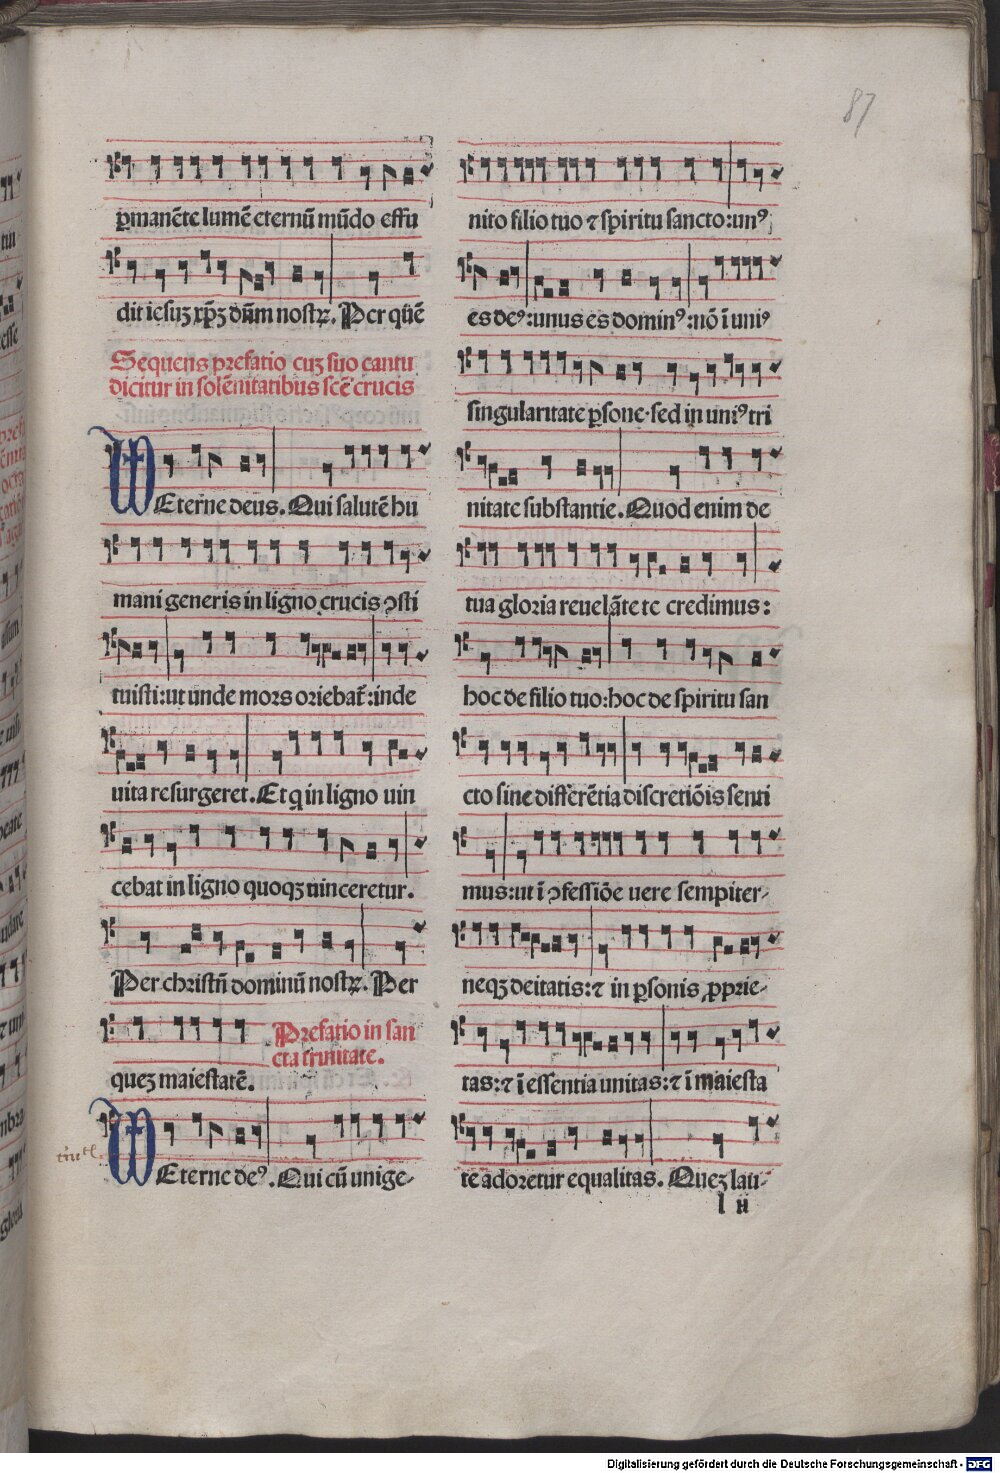 87
ꝑmanēte lumē eternū mūdo effu
dit iesuꝫ xp̄ꝫ dn̄m nostrꝝ. Per quē
Sequens prefatio cuꝫ suo cantu
dicitur in solēnitatibus scē crucis
Eterne deus. Qui salutē hu
mani generis in ligno crucis ↄsti
tuisti: ut unde mors oriebat̄: inde
uita resurgeret. Et ꝙ in ligno uin
cebat in ligno quoqꝫ uinceretur.
Per christū dominū nostrꝝ. Per
queꝫ maiestatē.
Prefatio in san
cta trinitate.
Eterne deꝰ. Qui cū unige-
nito filio tuo ⁊ spiritu sancto: unꝰ
es deꝰ: unus es dominꝰ: nō ī uniꝰ
singularitate ꝑsone. sed in uniꝰ tri
nitate substantie. Quod enim de
tua gloria reuelāte te credimus:
hoc de filio tuo: hoc de spiritu san
cto sine differētia discretiōis senti
mus: ut ī ↄfessiōe uere sempiter-
neqꝫ deitatis: ⁊ in ꝑsonis ꝓprie-
tas: ⁊ ī essentia unitas: ⁊ ī maiesta
te adoretur equalitas. Queꝫ lau-
l ii
Digitalisierung gefördert durch die Deutsche Forschungsgemeinschaft - DFG